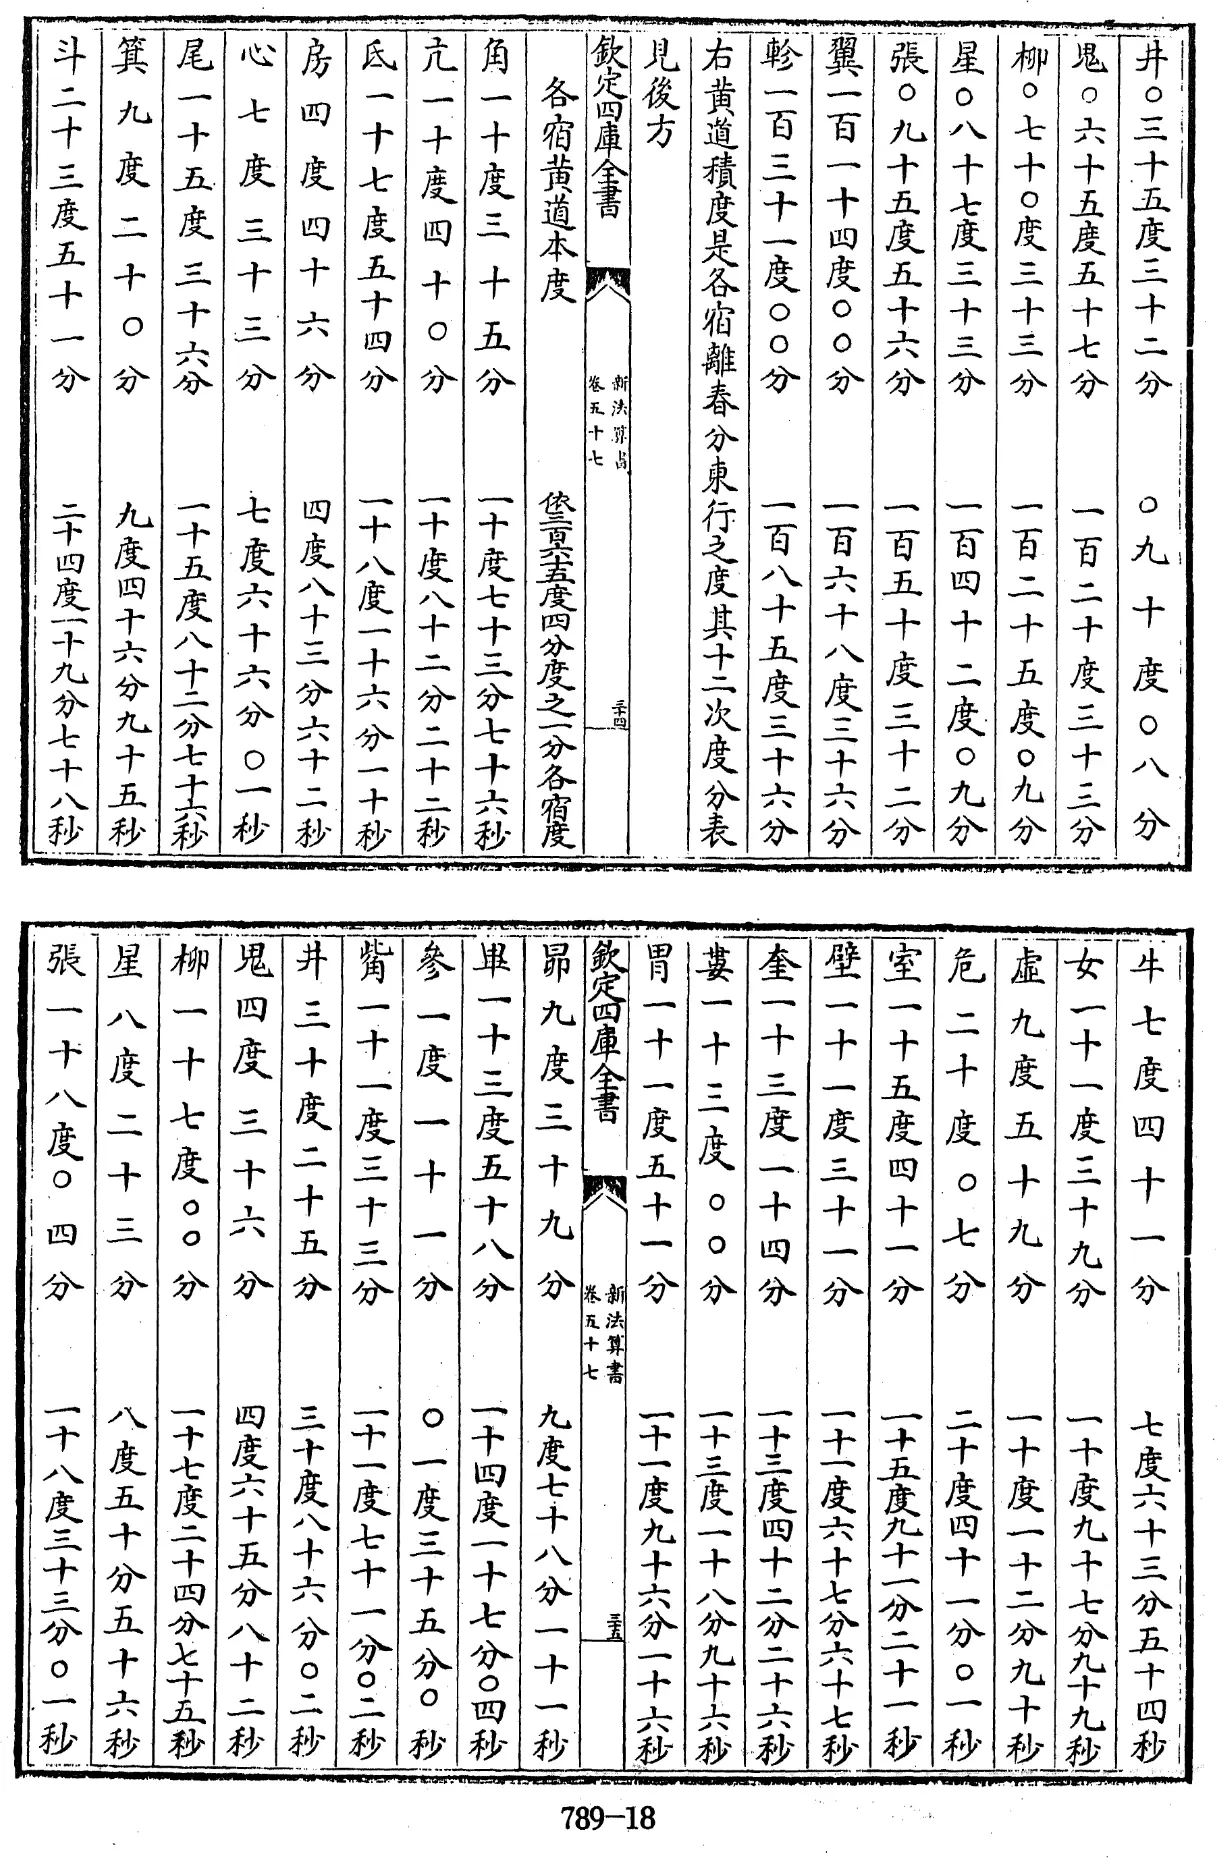 井〇三十五度三十二分　〇九十度〇八分
鬼〇六十五度五十七分　一百二十度三十三分
柳〇七十〇度三十三分　一百二十五度〇九分
星〇八十七度三十三分　一百四十二度〇九分
張〇九十五度五十六分　一百五十度三十二分
翼一百一十四度〇〇分　一百六十八度三十六分
軫一百三十一度〇〇分　一百八十五度三十六分
右黄道積度是各宿離春分東行之度其十二次度分表
見後方
欽定四庫全書　新法算書卷五十七　三十四
各宿黄道本度　依三百六十五度四分度之一分各宿度
角一十度三十五分　一十度七十三分七十六秒
亢一十度四十〇分　一十度八十二分二十二秒
氐一十七度五十四分　一十八度一十六分一十秒
房四度四十六分　四度八十三分六十二秒
心七度三十三分　七度六十六分〇一秒
尾一十五度三十六分　一十五度八十二分七十六秒
箕九度二十〇分　九度四十六分九十五秒
斗二十三度五十一分　二十四度一十九分七十八秒
牛七度四十一分　七度六十三分五十四秒
女一十一度三十九分　一十度九十七分九十九秒
虛九度五十九分　一十度一十二分九十秒
危二十度〇七分　二十度四十一分〇一秒
室一十五度四十一分　一十五度九十一分二十一秒
壁一十一度三十一分　一十一度六十七分六十七秒
奎一十三度一十四分　一十三度四十二分二十六秒
婁一十三度〇〇分　一十三度一十八分九十六秒
胃一十一度五十一分　一十一度九十六分一十六秒
欽定四庫全書　新法算書卷五十七　三十五
昴九度三十九分　九度七十八分一十一秒
畢一十三度五十八分　一十四度一十七分〇四秒
參一度一十一分　〇一度三十五分〇秒
觜一十一度三十三分　一十一度七十一分〇二秒
井三十度二十五分　三十度八十六分〇二秒
鬼四度三十六分　四度六十五分八十二秒
柳一十七度〇〇分　一十七度二十四分七十五秒
星八度二十三分　八度五十分五十六秒
張一十八度〇四分　一十八度三十三分〇一秒
789-18